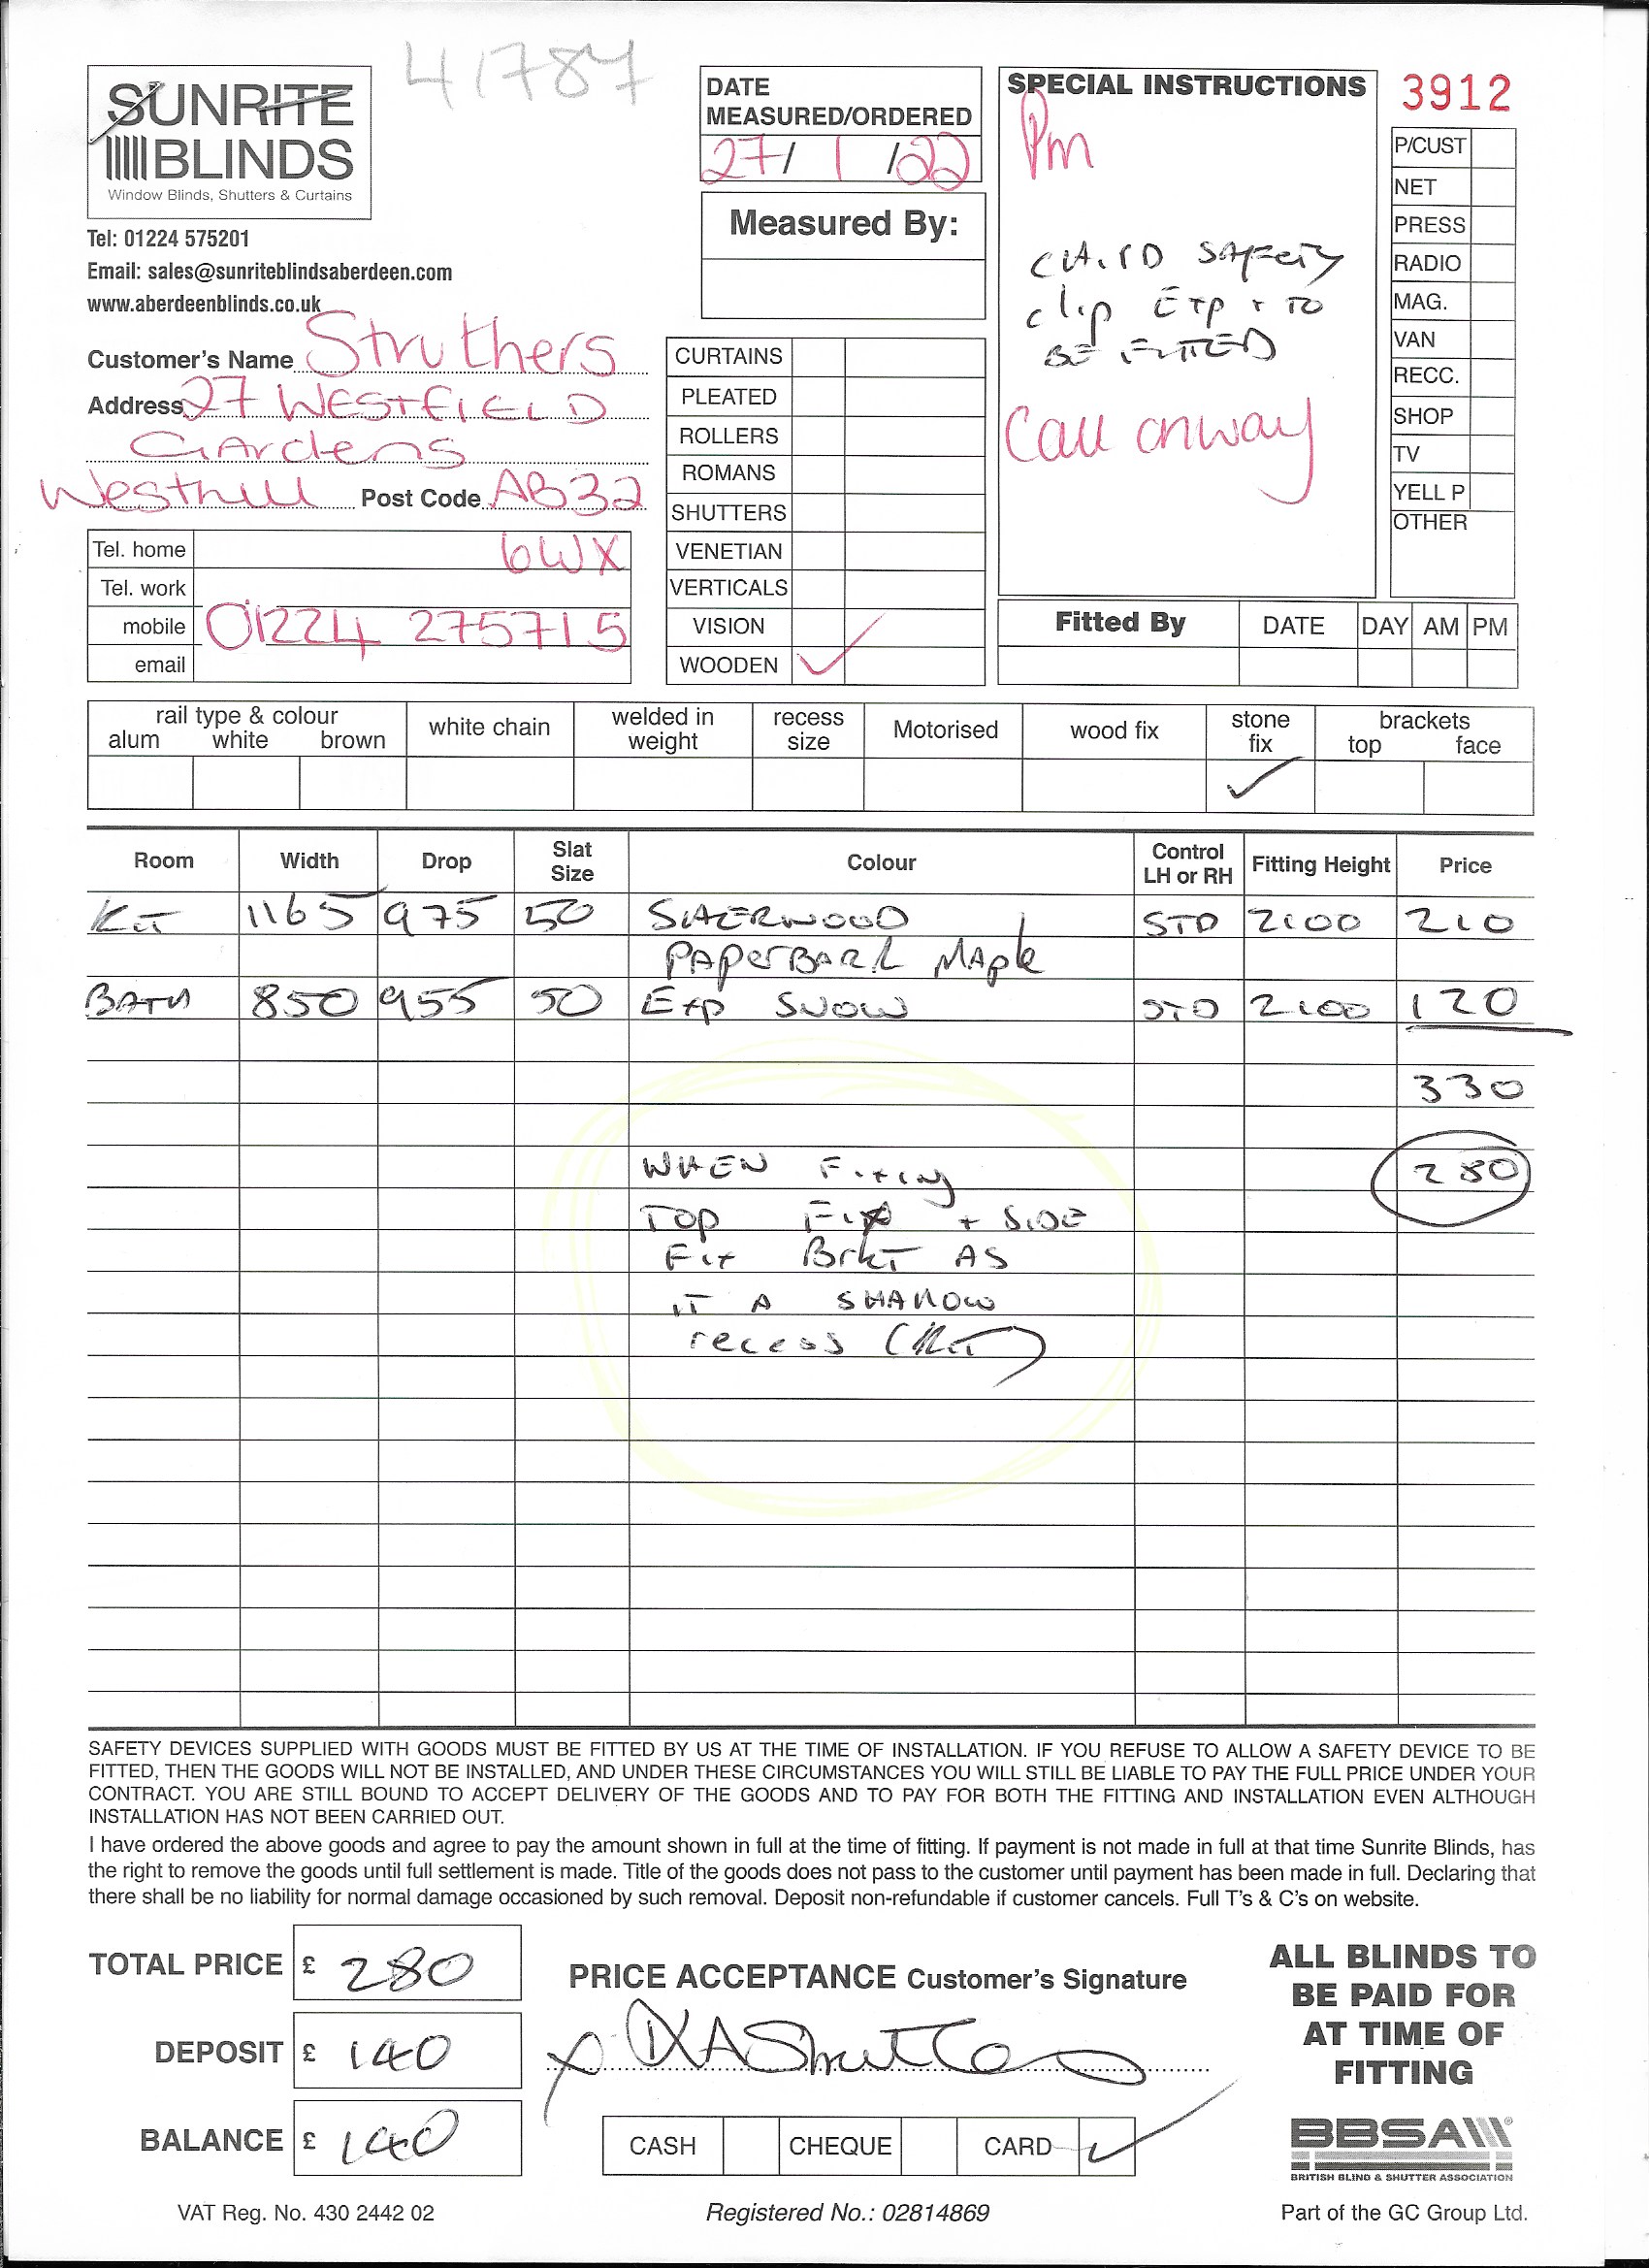 41787
SUNRITE
BLINDS
Window Blinds, Shutters & Curtains
Tel: 01224 575201
Email: sales@sunriteblindsaberdeen.com
www.aberdeenblinds.co.uk
Customer's Name Struthers
Address 27 WESTFIELD
GArdens
Westhill Post Code AB32
Tel. home 6WX
Tel. work
mobile 01224 275715
email
DATE
MEASURED/ORDERED
27/ 1 /22
Measured By:
CURTAINS
PLEATED
ROLLERS
ROMANS
SHUTTERS
VENETIAN
VERTICALS
VISION
WOODEN ✓
SPECIAL INSTRUCTIONS
Pm
CHILD SAFETY
clip Exp + TO
BE FITTED
Call onway
3912
P/CUST
NET
PRESS
RADIO
MAG.
VAN
RECC.
SHOP
TV
YELL P
OTHER
Fitted By DATE DAY AM PM
rail type & colour
alum white brown
white chain
welded in
weight
recess
size
Motorised
wood fix
stone
fix
✓
brackets
top face
Room Width Drop Slat Size Colour Control LH or RH Fitting Height Price
KIT 1165 975 50 SHERWOOD STD 2100 210
PAPERBARK MAple
BATH 850 955 50 Exp SNOW STD 2100 120
330
WHEN Fixing 280
TOP Fix + SIDE
Fix BrkT AS
IT A SHALLOW
recess (KIT)
SAFETY DEVICES SUPPLIED WITH GOODS MUST BE FITTED BY US AT THE TIME OF INSTALLATION. IF YOU REFUSE TO ALLOW A SAFETY DEVICE TO BE
FITTED, THEN THE GOODS WILL NOT BE INSTALLED, AND UNDER THESE CIRCUMSTANCES YOU WILL STILL BE LIABLE TO PAY THE FULL PRICE UNDER YOUR
CONTRACT. YOU ARE STILL BOUND TO ACCEPT DELIVERY OF THE GOODS AND TO PAY FOR BOTH THE FITTING AND INSTALLATION EVEN ALTHOUGH
INSTALLATION HAS NOT BEEN CARRIED OUT.
I have ordered the above goods and agree to pay the amount shown in full at the time of fitting. If payment is not made in full at that time Sunrite Blinds, has
the right to remove the goods until full settlement is made. Title of the goods does not pass to the customer until payment has been made in full. Declaring that
there shall be no liability for normal damage occasioned by such removal. Deposit non-refundable if customer cancels. Full T's & C's on website.
TOTAL PRICE £ 280
DEPOSIT £ 140
BALANCE £ 140
PRICE ACCEPTANCE Customer's Signature
x
CASH CHEQUE CARD ✓
ALL BLINDS TO
BE PAID FOR
AT TIME OF
FITTING
BBSA
BRITISH BLIND & SHUTTER ASSOCIATION
VAT Reg. No. 430 2442 02
Registered No.: 02814869
Part of the GC Group Ltd.